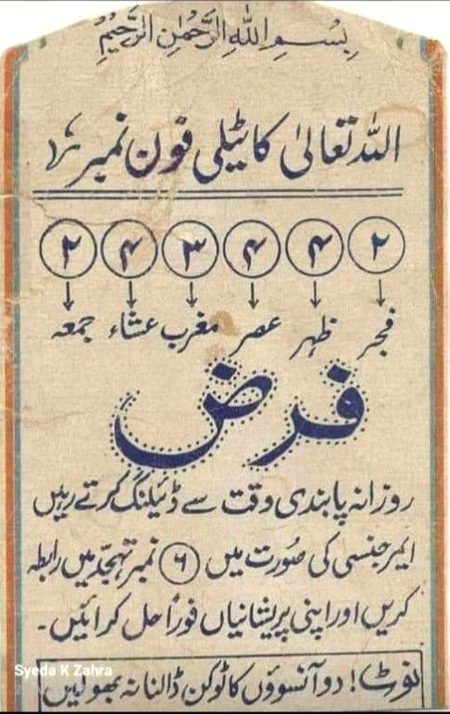 بِسْمِ اللهِ الرَّحْمٰنِ الرَّحِيْمِ
اللہ تعالیٰ کا ٹیلی فون نمبر
۲ ۴ ۴ ۳ ۴ ۲
فجر ظہر عصر مغرب عشاء جمعہ
فرض
روزانہ پابندی وقت سے ڈئیلنگ کرتے رہیں
ایمرجنسی کی صُورت میں ۶ نمبر تہجّد میں رابطہ
کریں اور اپنی پریشانیاں فوراً حل کرائیں۔
نوٹ! دو آنسوؤں کا ٹوکن ڈالنا نہ بھولیں
Syeda K Zahra